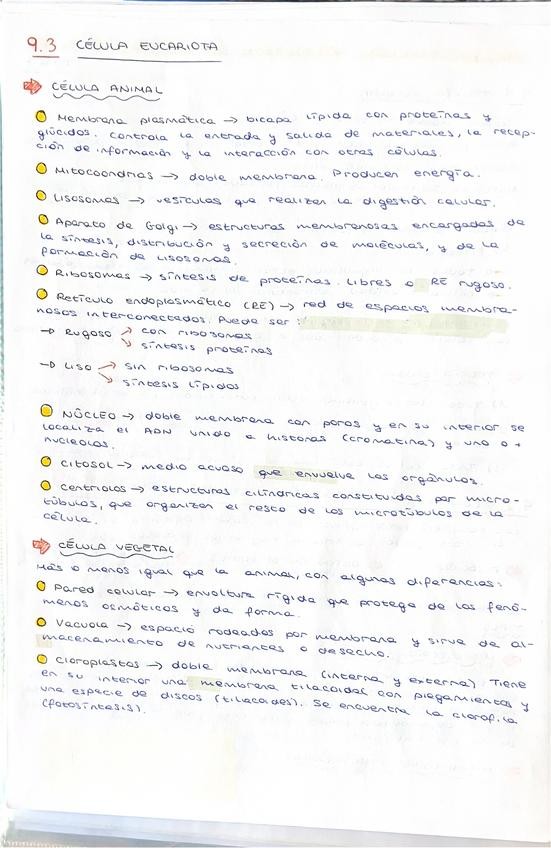 9.3 CÉLULA EUCARIOTA
CÉLULA ANIMAL
Membrana plasmática → bicapa lípida con proteínas y
glúcidos. Controla la entrada y salida de materiales, la recep-
ción de información y la interacción con otras células.
Mitocondrias → doble membrana. Producen energía.
Lisosomas → vesículas que realizan la digestión celular.
Aparato de Golgi → estructuras membranosas encargadas de
la síntesis, distribución y secreción de moléculas, y de la
formación de lisosomas.
Ribosomas → síntesis de proteínas. Libres o RE rugoso.
Retículo endoplasmático (RE) → red de espacios membra-
nosos interconectados. Puede ser:
→ Rugoso → con ribosomas
→ síntesis proteínas
→ Liso → sin ribosomas
→ síntesis lípidos
NÚCLEO → doble membrana con poros y en su interior se
localiza el ADN unido a histonas (cromatina) y uno o +
nucleolos.
Citosol → medio acuoso que envuelve los orgánulos.
Centriolos → estructuras cilíndricas constituidas por micro-
túbulos, que organizan el resto de los microtúbulos de la
célula.
CÉLULA VEGETAL
Más o menos igual que la animal, con algunas diferencias:
Pared celular → envoltura rígida que protege de los fenó-
menos osmóticos y da forma.
Vacuola → espacio rodeados por membrana y sirve de al-
macenamiento de nutrientes o desecho.
Cloroplastos → doble membrana (interna y externa) Tiene
en su interior una membrana tilacoidal con plegamientos y
una especie de discos (tilacoides). Se encuentra la clorofila
(fotosíntesis).